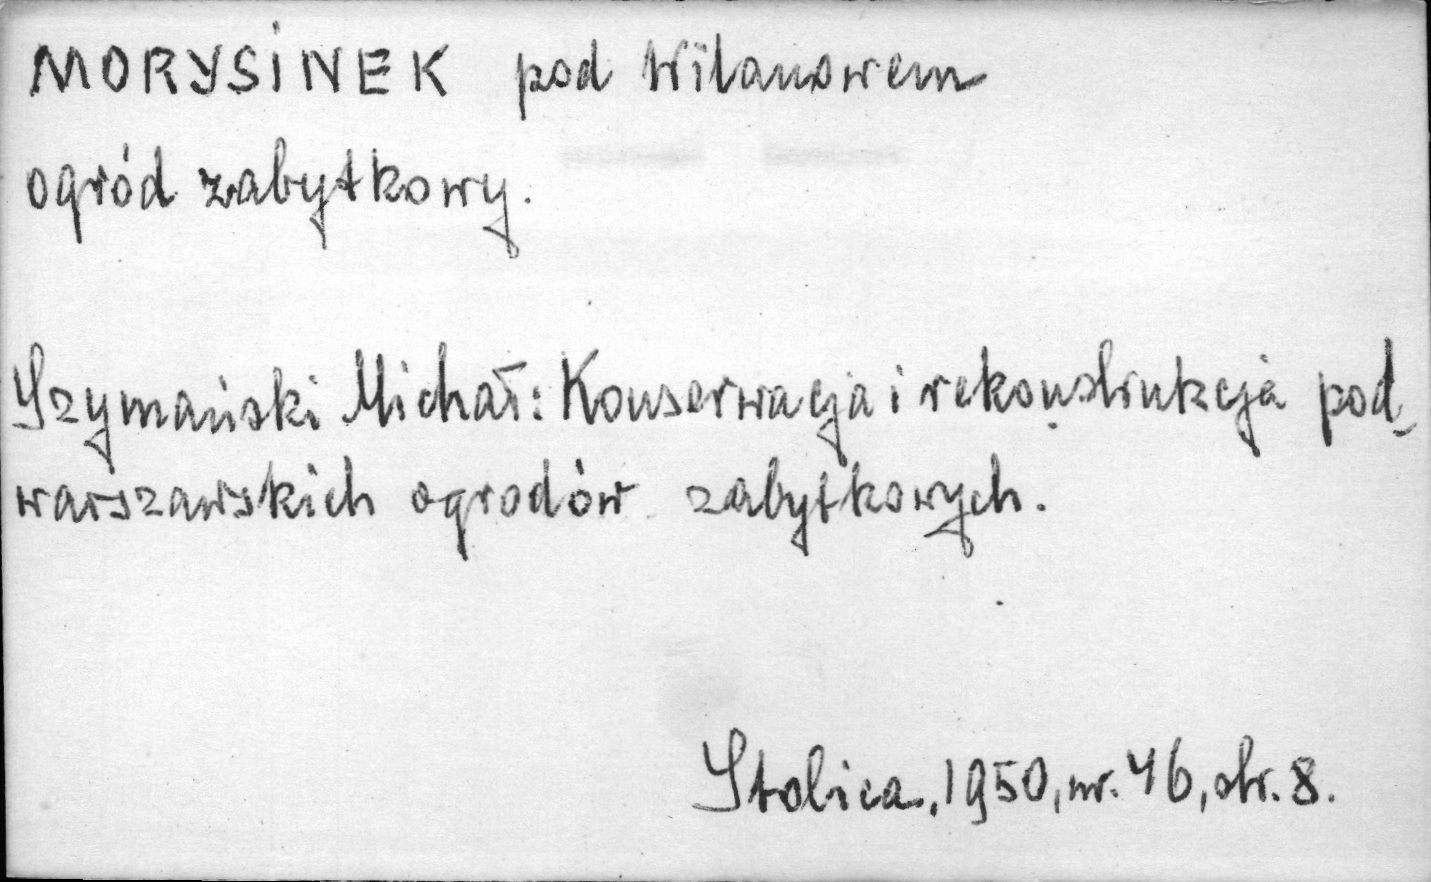 MORYSINEK pod Wilanowem
ogród zabytkowy.
Szymański Michał: Konserwacja i rekonstrukcja pod-
warszawskich ogrodów zabytkowych.
Stolica, 1950, nr. 46, str. 8.